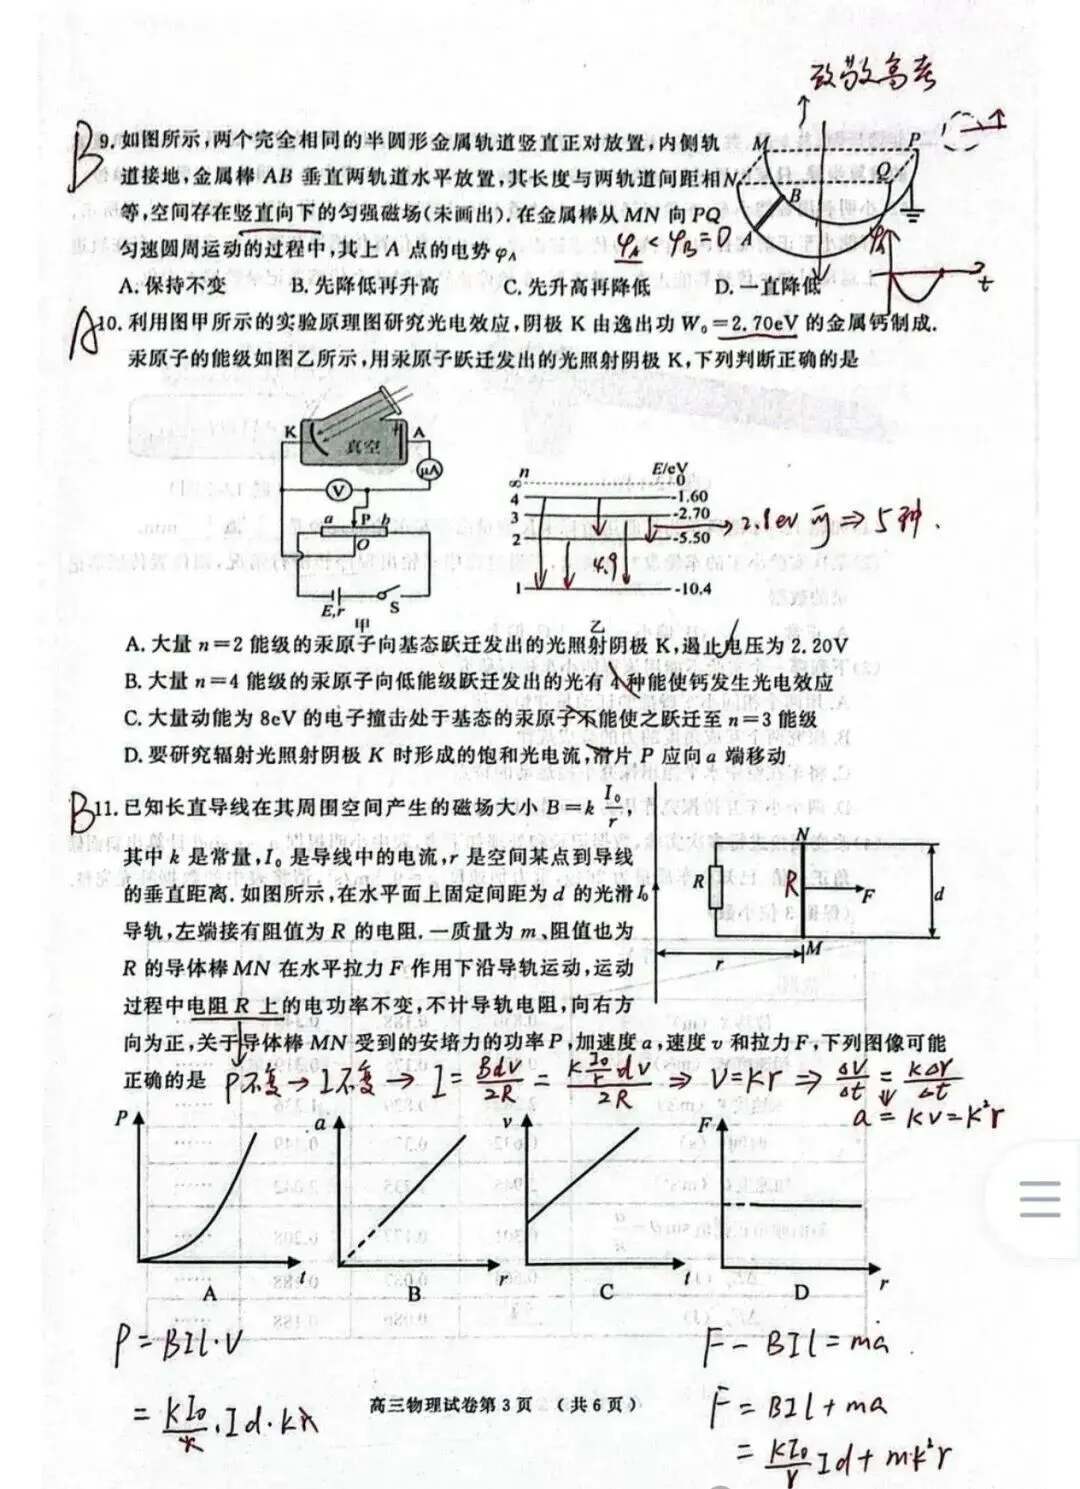 致敬高考
B 9. 如图所示,两个完全相同的半圆形金属轨道竖直正对放置,内侧轨
道接地,金属棒 AB 垂直两轨道水平放置,其长度与两轨道间距相
等,空间存在竖直向下的匀强磁场(未画出),在金属棒从 MN 向 PQ
匀速圆周运动的过程中,其上 A 点的电势 φA
φA < φB = 0
M P N Q B A
φA t
A. 保持不变 B. 先降低再升高 C. 先升高再降低 D. 一直降低
A 10. 利用图甲所示的实验原理图研究光电效应,阴极 K 由逸出功 W₀=2.70eV 的金属钙制成.
汞原子的能级如图乙所示,用汞原子跃迁发出的光照射阴极 K,下列判断正确的是
K 真空 A
μA
V
a P b
O
E,r S
甲
n E/eV
∞ 0
4 -1.60
3 -2.70
2 -5.50
1 -10.4
4.9
2.8ev 可 ⇒ 5种.
乙
A. 大量 n=2 能级的汞原子向基态跃迁发出的光照射阴极 K,遏止电压为 2.20V
B. 大量 n=4 能级的汞原子向低能级跃迁发出的光有 4 种能使钙发生光电效应
C. 大量动能为 8eV 的电子撞击处于基态的汞原子不能使之跃迁至 n=3 能级
D. 要研究辐射光照射阴极 K 时形成的饱和光电流,滑片 P 应向 a 端移动
B 11. 已知长直导线在其周围空间产生的磁场大小 B=k I₀/r,
其中 k 是常量,I₀ 是导线中的电流,r 是空间某点到导线
的垂直距离. 如图所示,在水平面上固定间距为 d 的光滑
导轨,左端接有阻值为 R 的电阻. 一质量为 m、阻值也为
R 的导体棒 MN 在水平拉力 F 作用下沿导轨运动,运动
过程中电阻 R 上的电功率不变,不计导轨电阻,向右方
向为正,关于导体棒 MN 受到的安培力的功率 P,加速度 a,速度 v 和拉力 F,下列图像可能
正确的是
I₀ R N R F d M r
P不变 → I不变 → I = Bdv/2R = k I₀/r dv/2R ⇒ v=kr ⇒ Δv/Δt = kΔr/Δt
a = kv = k²r
P t A
a r B
v t C
F r D
P = BIl·v
= kI₀/r · Id·kr
F - BIl = ma
F = BIl + ma
= kI₀/r Id + mk²r
高三物理试卷第 3 页 (共 6 页)